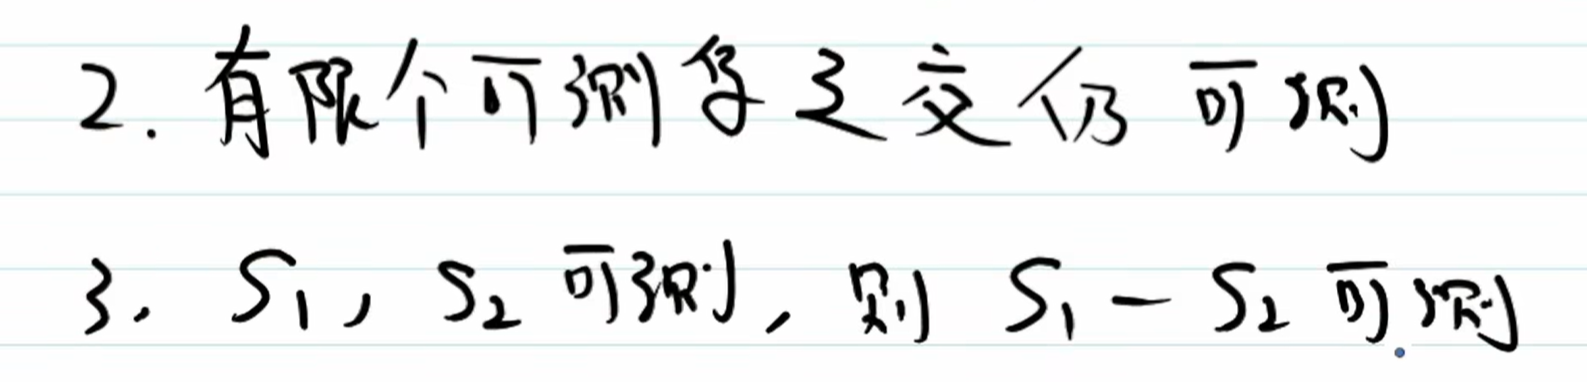 2. 有限个可测集之交仍可测
3. S₁, S₂ 可测, 则 S₁ - S₂ 可测